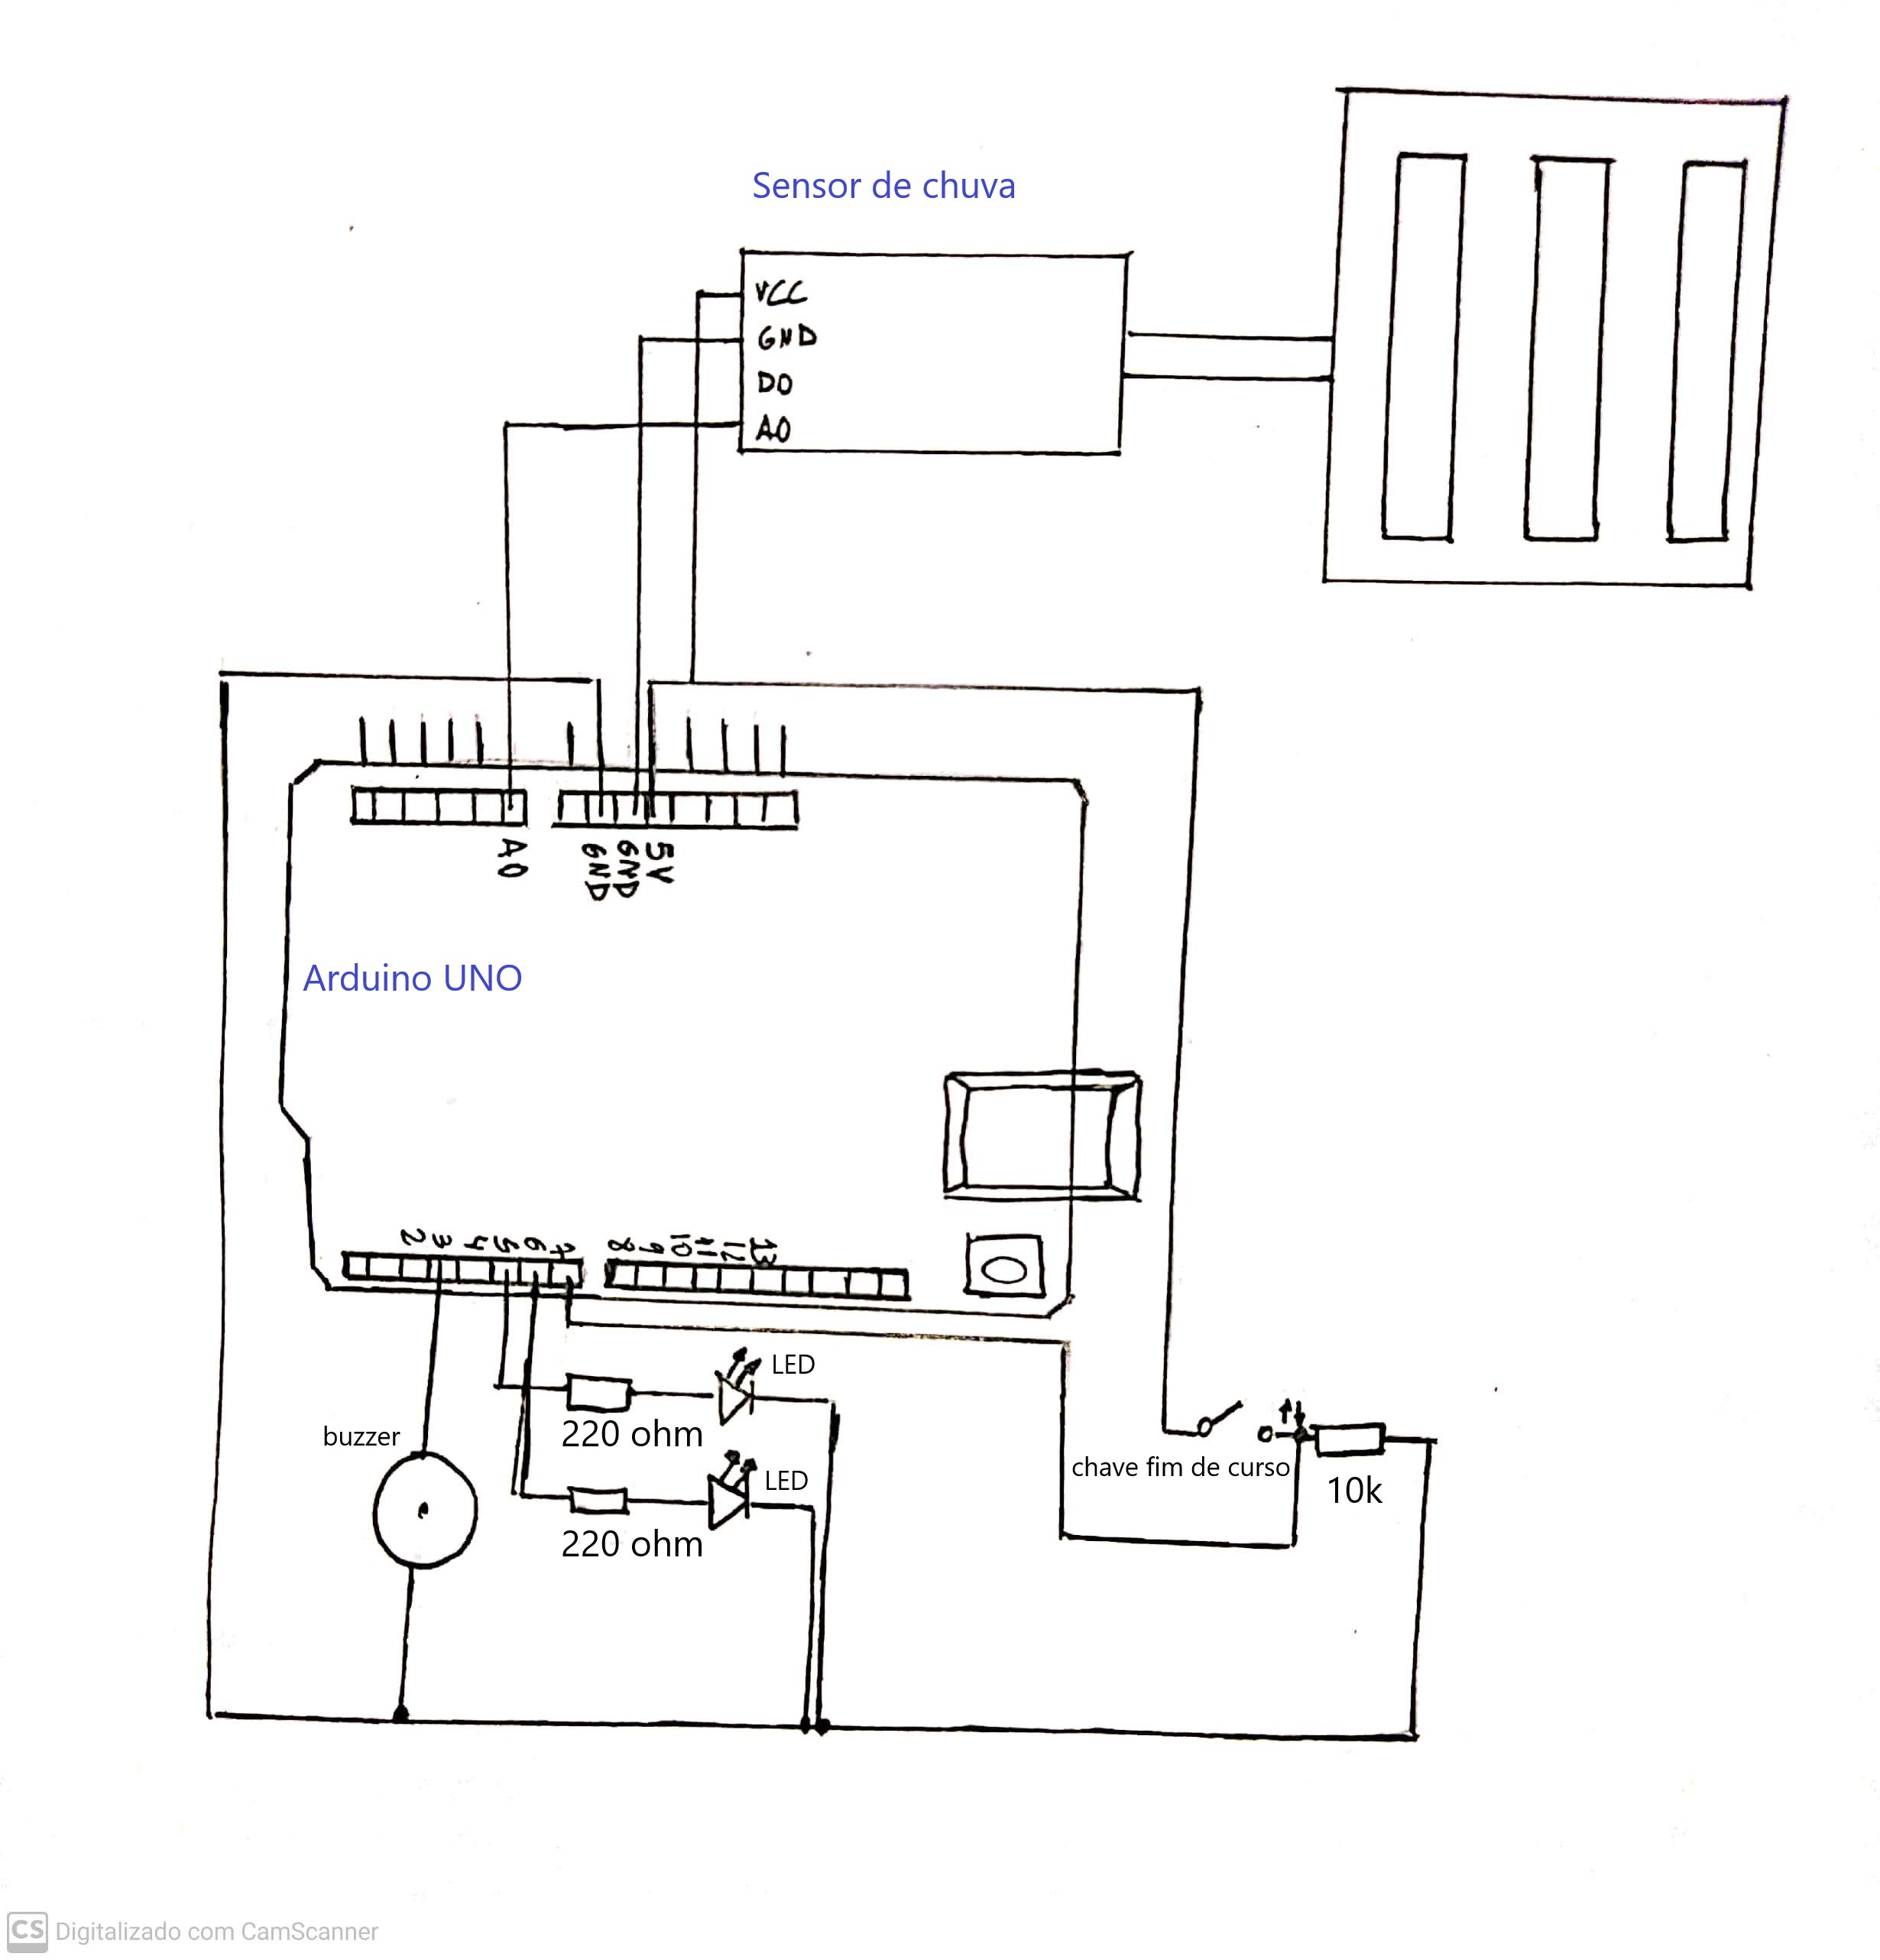 Sensor de chuva
VCC
GND
D0
A0
A0
GND
GND
5V
Arduino UNO
2 3 4 5 6 7 8 9 10 11 12 13
LED
220 ohm
buzzer
LED
220 ohm
chave fim de curso
10k
CS Digitalizado com CamScanner